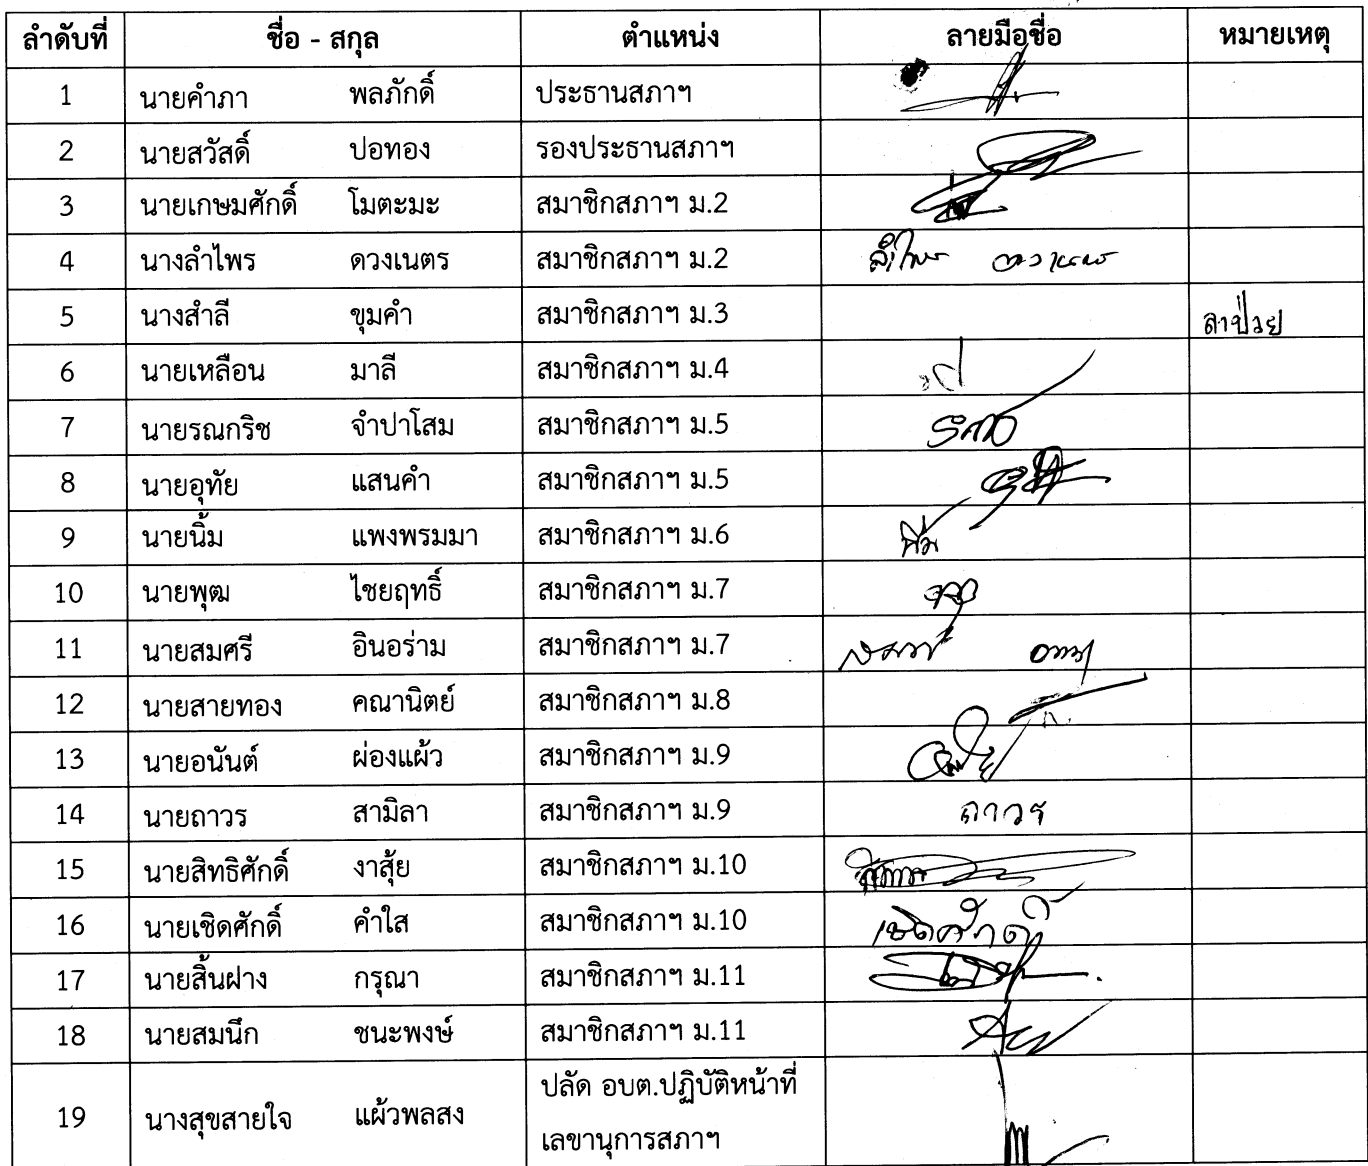 ลำดับที่ ชื่อ - สกุล ตำแหน่ง ลายมือชื่อ หมายเหตุ
1 นายคำภา พลภักดิ์ ประธานสภาฯ
2 นายสวัสดิ์ ปอทอง รองประธานสภาฯ
3 นายเกษมศักดิ์ โมตะมะ สมาชิกสภาฯ ม.2
4 นางลำไพร ดวงเนตร สมาชิกสภาฯ ม.2 ลำไพร ดวงเนตร
5 นางสำลี ขุมคำ สมาชิกสภาฯ ม.3 ลาป่วย
6 นายเหลือน มาลี สมาชิกสภาฯ ม.4
7 นายรณกริช จำปาโสม สมาชิกสภาฯ ม.5
8 นายอุทัย แสนคำ สมาชิกสภาฯ ม.5
9 นายนิ้ม แพงพรมมา สมาชิกสภาฯ ม.6
10 นายพุฒ ไชยฤทธิ์ สมาชิกสภาฯ ม.7
11 นายสมศรี อินอร่าม สมาชิกสภาฯ ม.7
12 นายสายทอง คณานิตย์ สมาชิกสภาฯ ม.8
13 นายอนันต์ ผ่องแผ้ว สมาชิกสภาฯ ม.9
14 นายถาวร สามิลา สมาชิกสภาฯ ม.9 ถาวร
15 นายสิทธิศักดิ์ งาสุ้ย สมาชิกสภาฯ ม.10
16 นายเชิดศักดิ์ คำใส สมาชิกสภาฯ ม.10 เชิดศักดิ์
17 นายสิ้นฝาง กรุณา สมาชิกสภาฯ ม.11
18 นายสมนึก ชนะพงษ์ สมาชิกสภาฯ ม.11
19 นางสุขสายใจ แผ้วพลสง ปลัด อบต.ปฏิบัติหน้าที่
เลขานุการสภาฯ